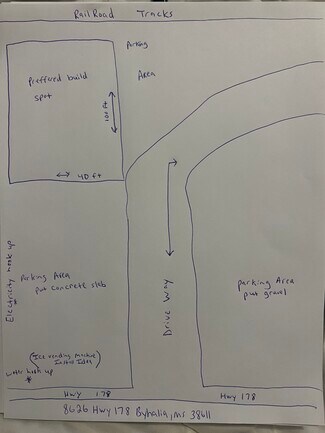 RailRoad Tracks
Parking
Area
Preffered build
spot
100 ft
40 ft
Electricity hook up
Parking Area
put concrete slab
Drive Way
parking Area
put gravel
(Ice vending machine
Initial Idea)
water hook up
Hwy 178
Hwy 178
8626 Hwy 178 Byhalia, ms 38611